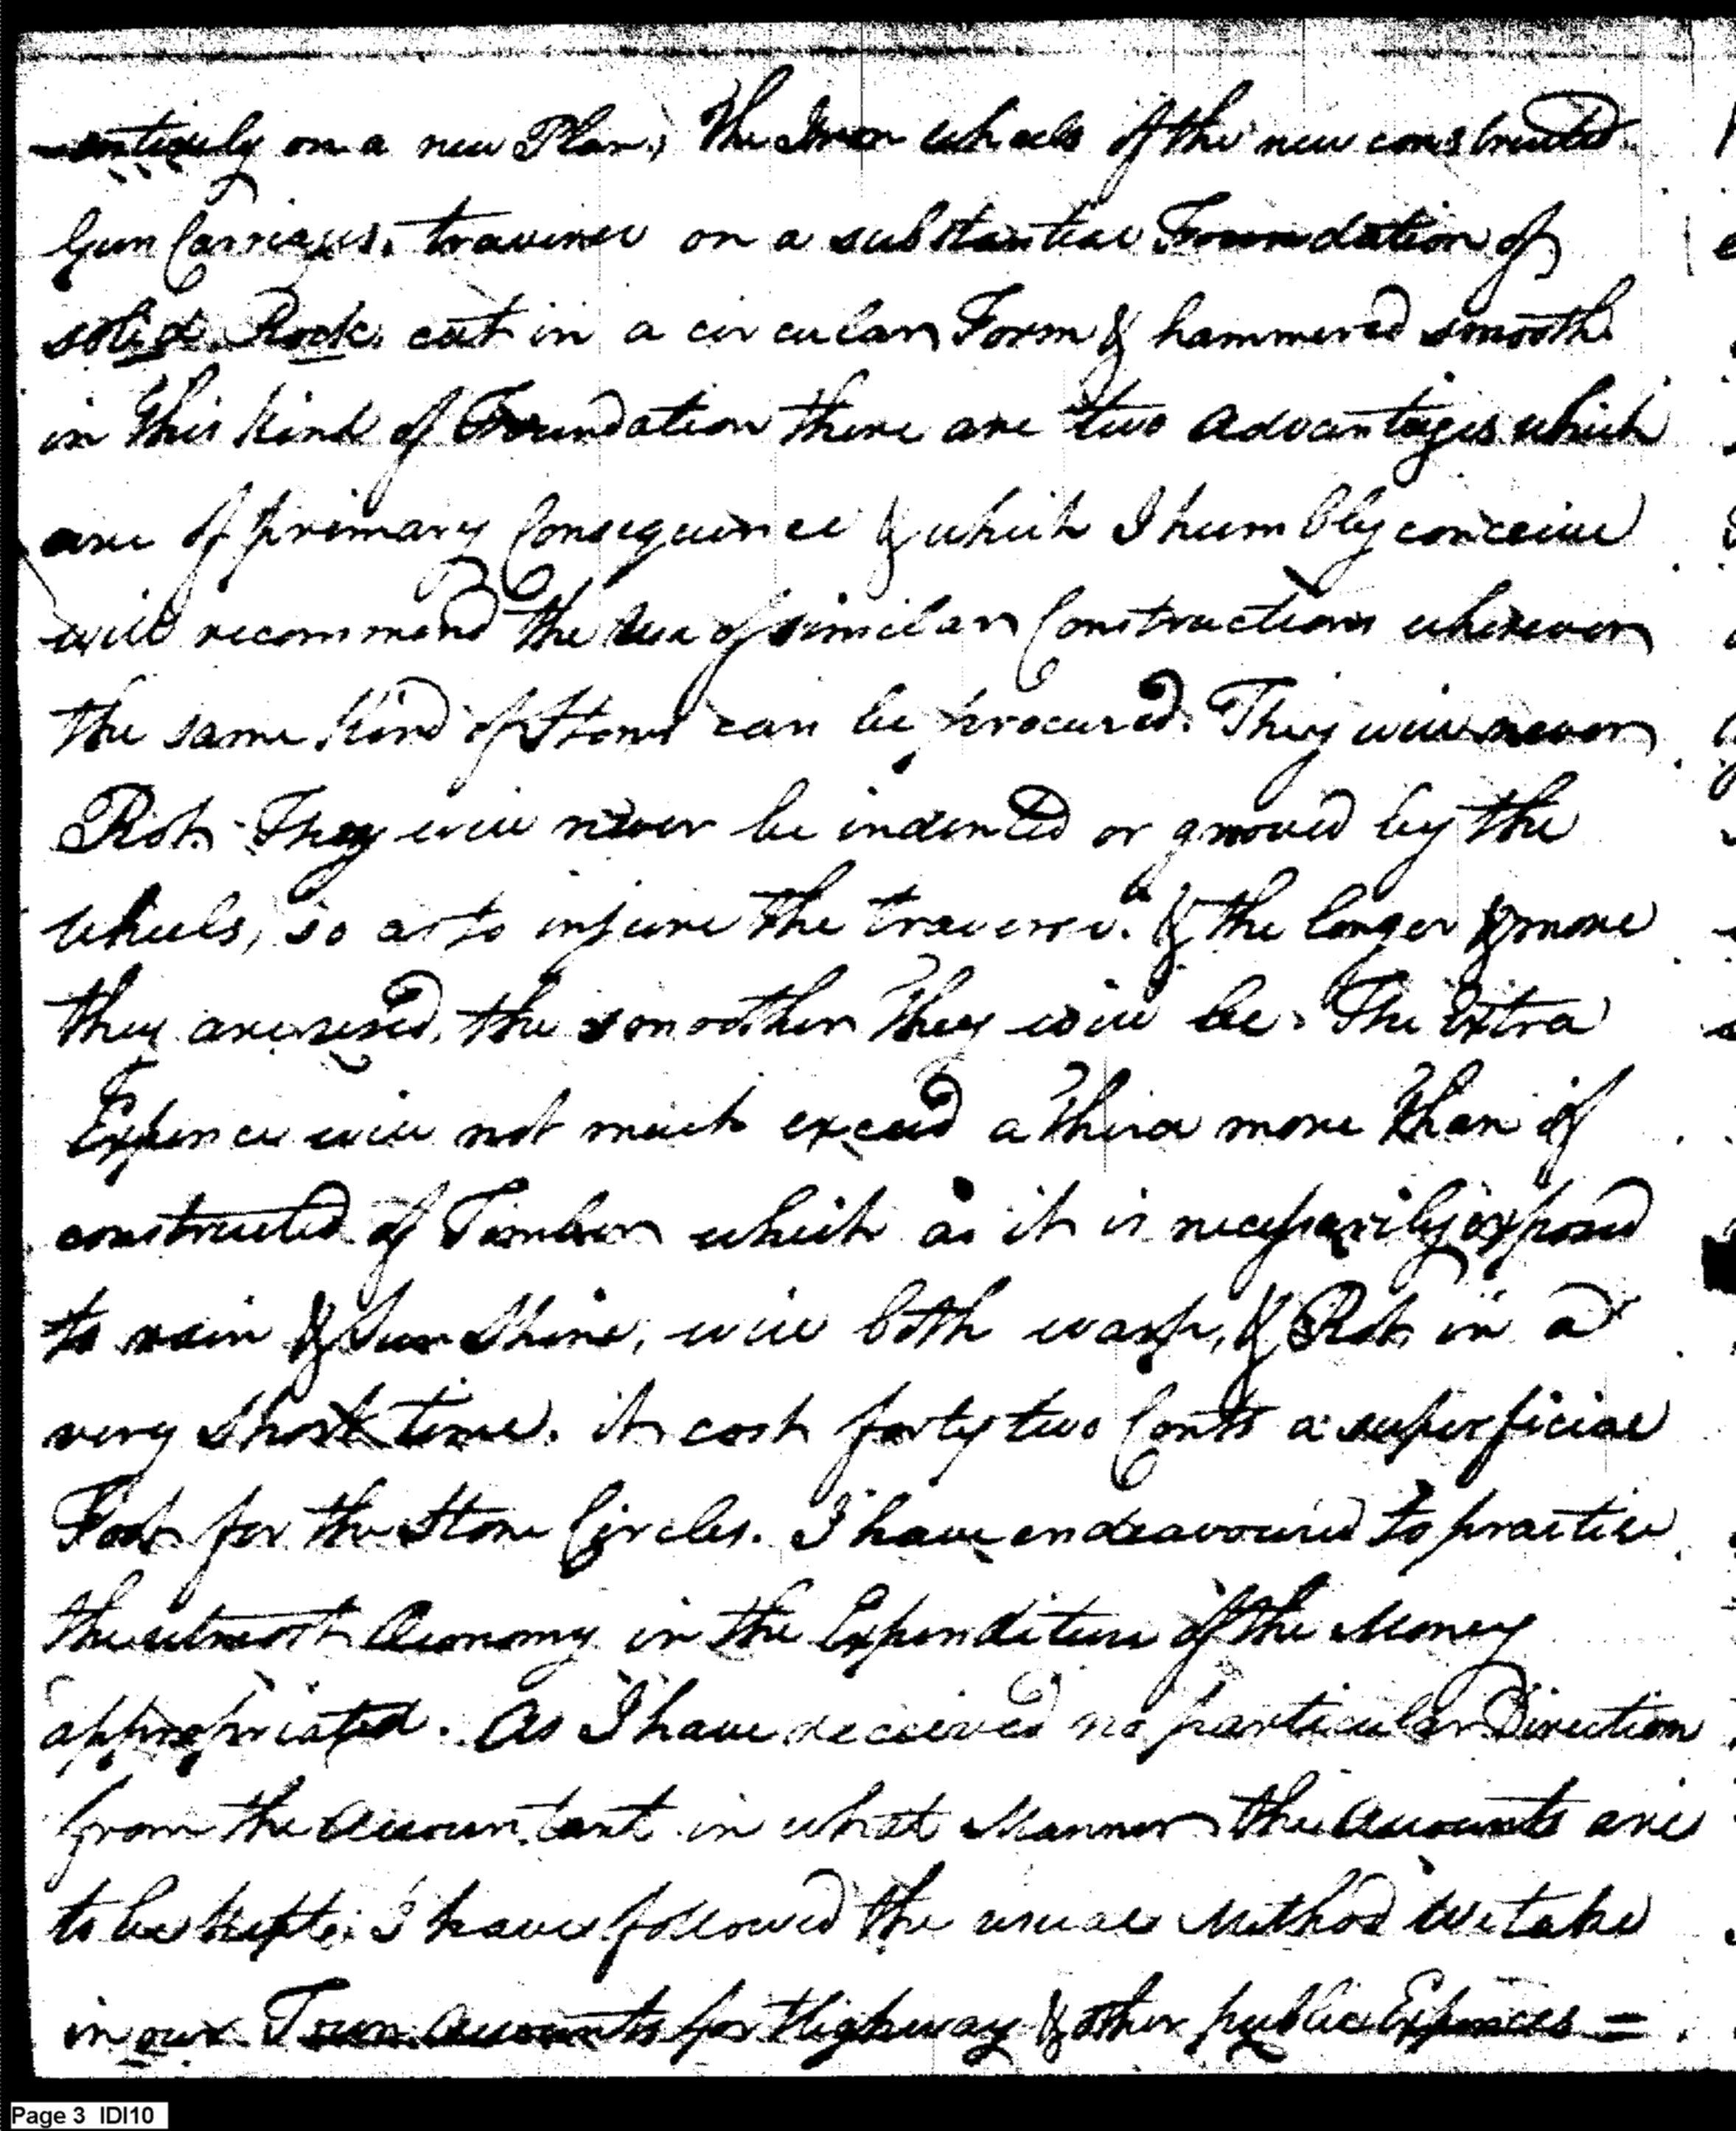 entirely on a new Plan, The Iron wheels of the new constructed
Gun Carriages, traverse on a substantial Foundation of
solid Rock cut in a circular Form & hammered smooth
in this kind of Foundation there are two advantages which
are of primary Consequence & which I humbly conceive
will recommend the Use of similar Constructions wherever
the same kind of Stone can be procured. They will never
Rot. They will never be indented or grooved by the
wheels, so as to injure the traverse. & the longer & more
they are used, the smoother they will be. The Extra
Expence will not much exceed a third more than if
constructed of Timber which as it is necessarily exposed
to rain & Sun Shine, will both warp, & Rot in a
very short time. it cost forty two Cents a superficial
Foot for the Stone Circles. I have endeavoured to practice
the utmost Œconomy in the Expenditure of the Money
appropriated. As I have received no particular Direction
from the Accountant in what Manner the Accounts are
to be kept. I have followed the usual Method We take
in our Town Accounts for Highway & other public Expences =
Page 3 IDI10